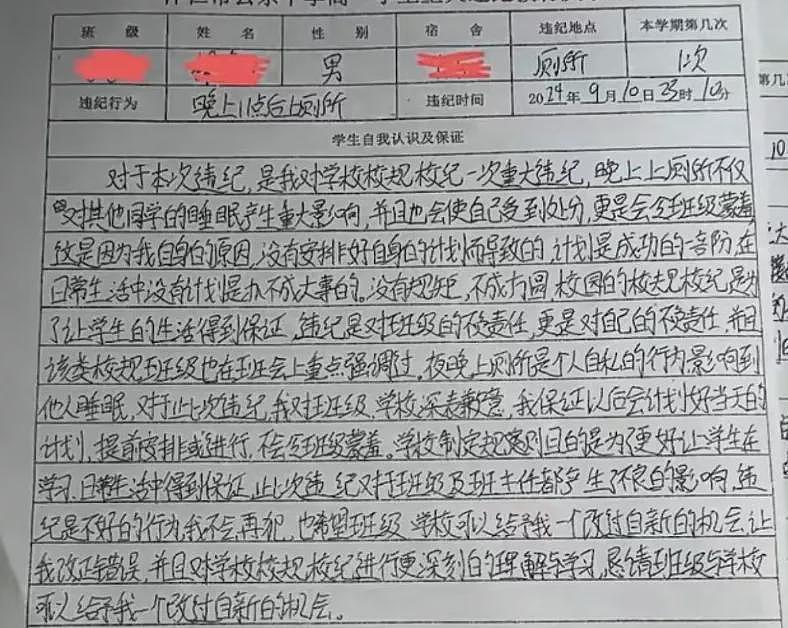 班级 姓名 性别 宿舍 违纪地点 本学期第几次
男 厕所 1次
违纪行为 晚上11点后上厕所 违纪时间 2024年9月10日23时10分
学生自我认识及保证
对于本次违纪,是我对学校校规校纪一次重大违纪,晚上上厕所不仅
对其他同学的睡眠产生重大影响,并且也会使自己受到处分,更是会令班级蒙羞
这是因为我自身的原因,没有安排好自身的计划而导致的,计划是成功的一部份,在
日常生活中没有计划是办不成大事的。没有规矩,不成方圆,校园的校规校纪是为
了让学生的生活得到保证,违纪是对班级的不负责任,更是对自己的不负责任,并且
该类校规班级也在班会上重点强调过,夜晚上厕所是个人自私的行为,影响到
他人睡眠,对于此次违纪,我对班级、学校深表歉意,我保证以后会计划好当天的
计划,提前安排或进行,不会令班级蒙羞。学校制定规章则目的是为了更好让学生在
学习、日常生活中得到保证,此次违纪对于班级及班主任都产生了不良的影响,违
纪是不好的行为,我不会再犯,也希望班级、学校可以给予我一个改过自新的机会,让
我改正错误,并且对学校校规、校纪进行更深刻的理解与学习,恳请班级与学校
可以给予我一个改过自新的机会。
第几
10